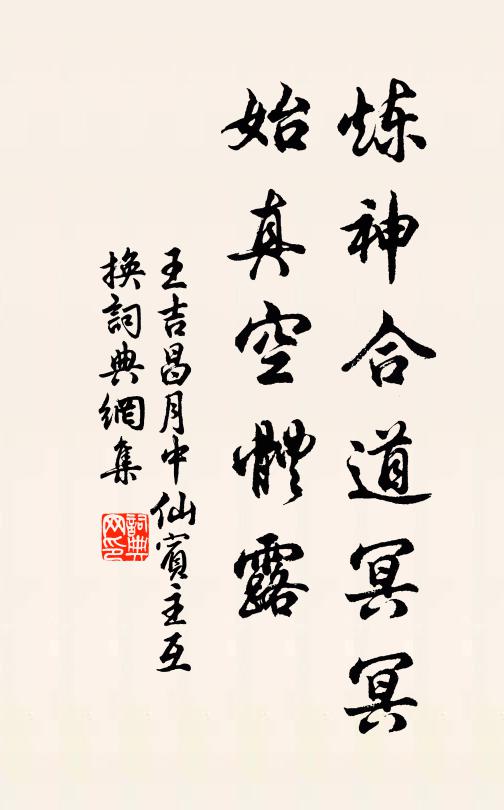 炼神合道冥冥
始真空體露
王吉昌月中仙賓主互
換詞典網集
詞典网印